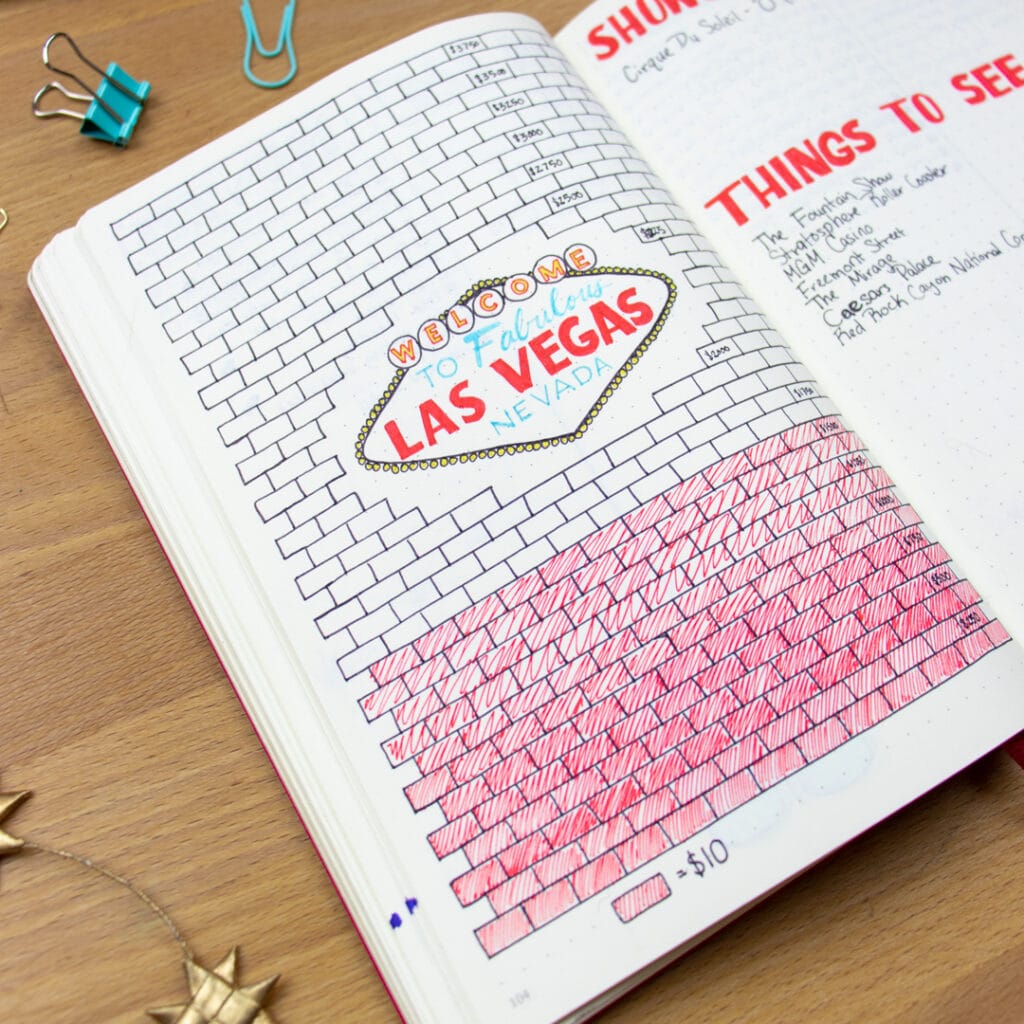 $3750
$3500
$3250
$3000
$2750
$2500
WELCOME
TO Fabulous
LAS VEGAS
NEVADA
$2000
$1750
$1500
$500
$250
= $10
104
Cirque Du Soleil -
THINGS TO SEE
The Fountain Show
Stratosphere Roller Coaster
MGM Casino
Freemont Street
The Mirage
Caesars Palace
Red Rock Cayon National